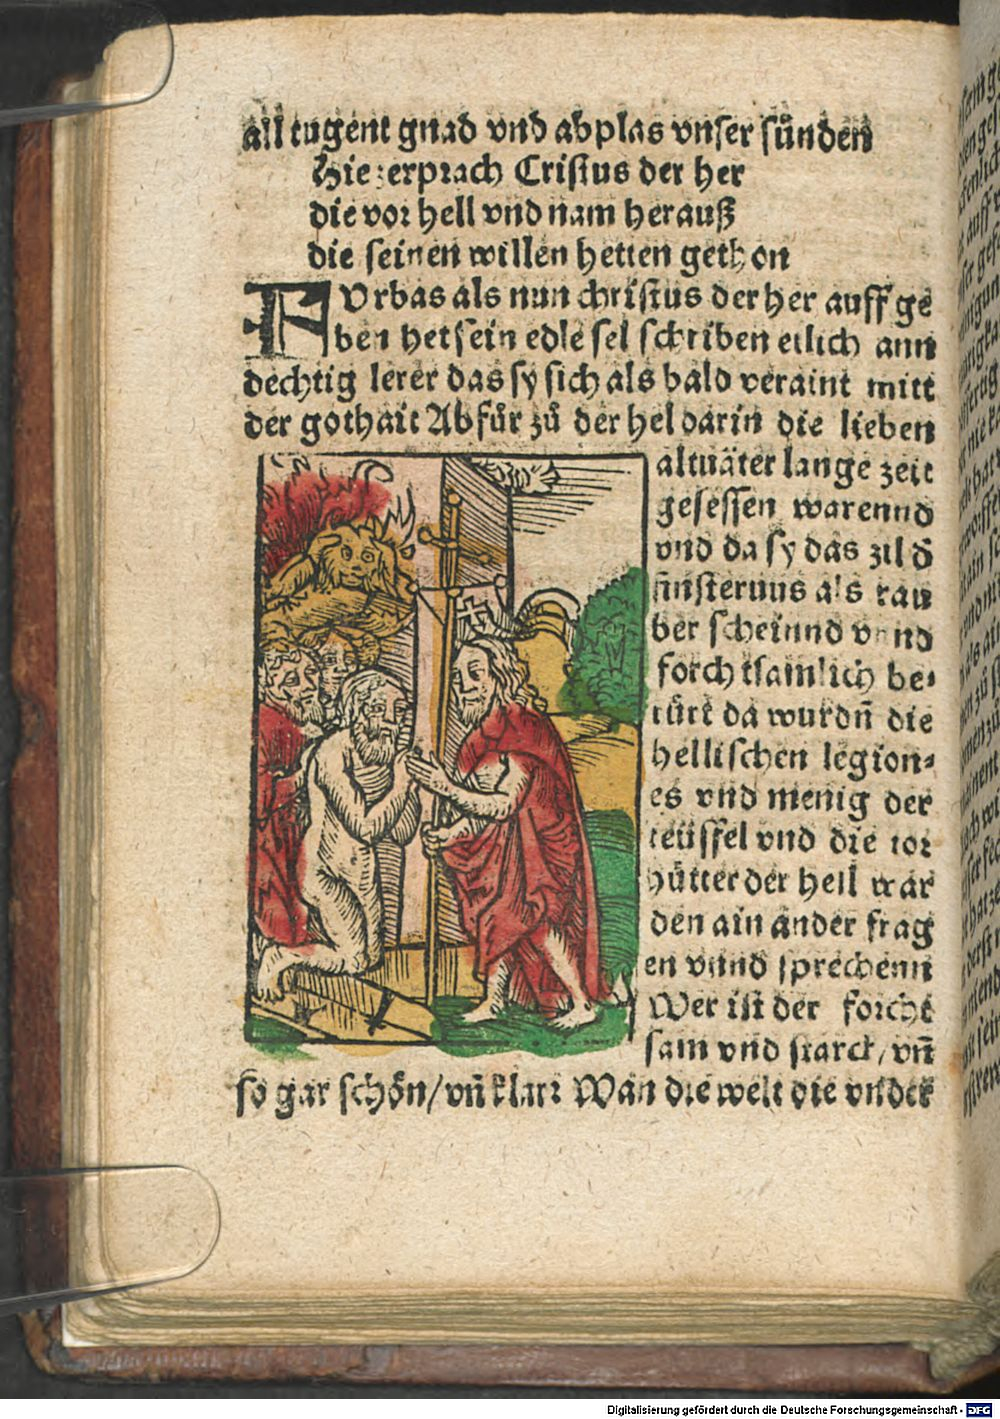 all tugent gnad vnd abplas vnser sünden
Hie zerprach Cristus der her
die vor hell vnd nam herauß
die seinen willen hetten gethon
FVrbas als nun christus der her auff ge
ben het sein edle sel schriben etlich ann
dechtig lerer das sy sich als bald veraint mitt
der gothait Abfůr zů der hel darin die lieben
altuäter lange zeit
gesessen warennd
vnd da sy das zil d̄
finsternus als rau
ber scheinnd vnnd
forchtsamlich be⸗
rürt da wurdn̄ die
hellischen legion⸗
es vnd menig der
teüffel vnd die tor
hütter der hell war
den ain ander frag
en vnnd sprechenn
Wer ist der forcht
sam vnd starck/ vn̄
so gar schön/ vn̄ klar: Wan die welt die vnder
Digitalisierung gefördert durch die Deutsche Forschungsgemeinschaft - DFG